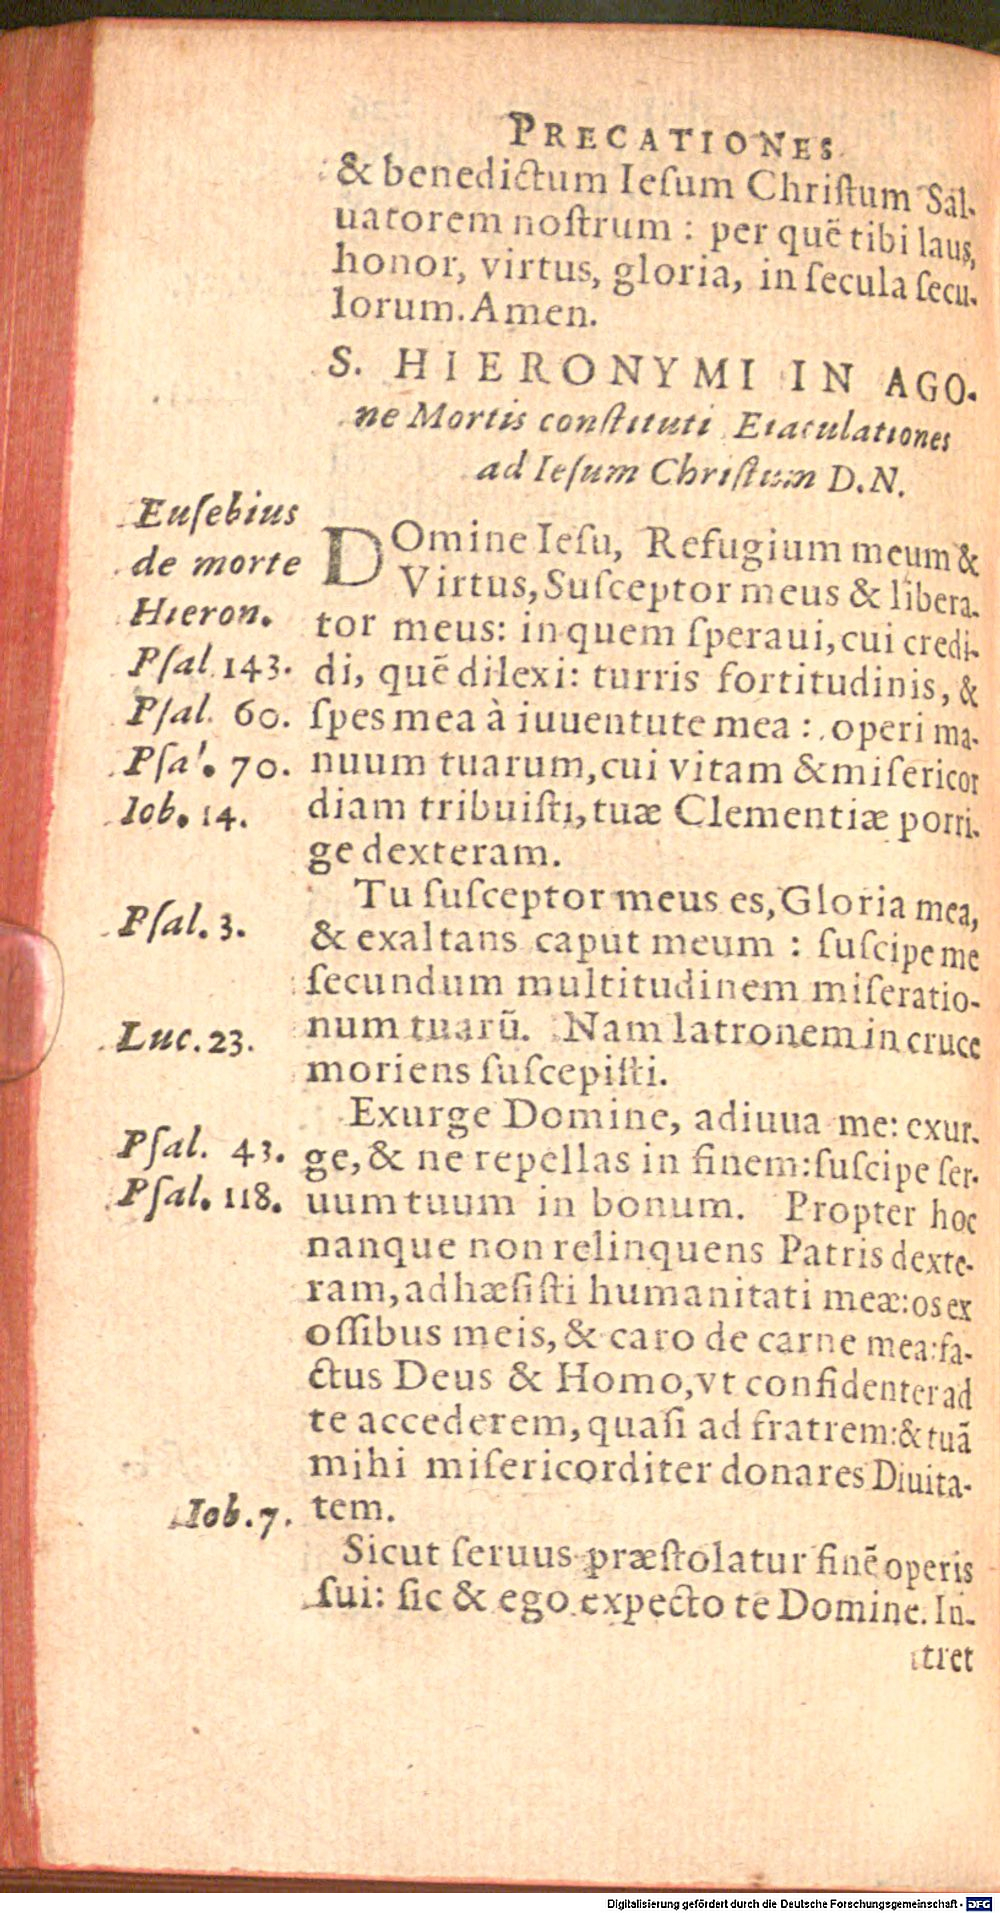 PRECATIONES
& benedictum Ieſum Chriſtum Sal-
uatorem noſtrum : per quē tibi laus,
honor, virtus, gloria, in ſecula ſecu-
lorum. Amen.
S. HIERONYMI IN AGO-
ne Mortis conſtituti Eiaculationes
ad Ieſum Chriſtum D.N.
Euſebius
de morte
Hieron.
Pſal. 143.
Pſal. 60.
Pſal. 70.
Iob. 14.
DOmine Ieſu, Refugium meum &
Virtus, Suſceptor meus & libera-
tor meus: in quem ſperaui, cui credi-
di, quē dilexi: turris fortitudinis, &
ſpes mea à iuuentute mea : operi ma-
nuum tuarum, cui vitam & miſericor
diam tribuiſti, tuæ Clementiæ porri-
ge dexteram.
Pſal. 3.
Tu ſuſceptor meus es, Gloria mea,
& exaltans caput meum : ſuſcipe me
ſecundum multitudinem miſeratio-
num tuarū. Nam latronem in cruce
moriens ſuſcepiſti.
Luc. 23.
Exurge Domine, adiuua me: exur-
ge, & ne repellas in finem: ſuſcipe ſer-
uum tuum in bonum. Propter hoc
nanque non relinquens Patris dexte-
ram, adhæſiſti humanitati meæ: os ex
oſſibus meis, & caro de carne mea: fa-
ctus Deus & Homo, vt confidenter ad
te accederem, quaſi ad fratrem: & tuā
mihi miſericorditer donares Diuita-
tem.
Pſal. 43.
Pſal. 118.
Iob. 7.
Sicut ſeruus præſtolatur finē operis
ſui: ſic & ego expecto te Domine. In-
tret
Digitalisierung gefördert durch die Deutsche Forschungsgemeinschaft - DFG